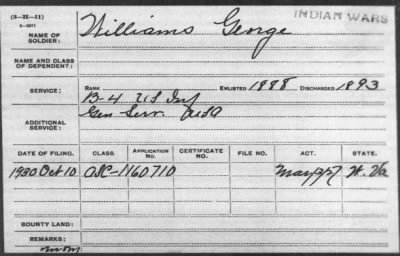 (3-2E-11)
INDIAN WARS
NAME OF SOLDIER: Williams George
NAME AND CLASS OF DEPENDENT:
SERVICE: RANK ENLISTED 1888 DISCHARGED 1893
B-4 US Inf
ADDITIONAL SERVICE: Gen Serv. USA
DATE OF FILING. CLASS. APPLICATION No. CERTIFICATE NO. FILE NO. ACT. STATE.
1930 Oct 10 1160710 W. Va
BOUNTY LAND:
REMARKS: